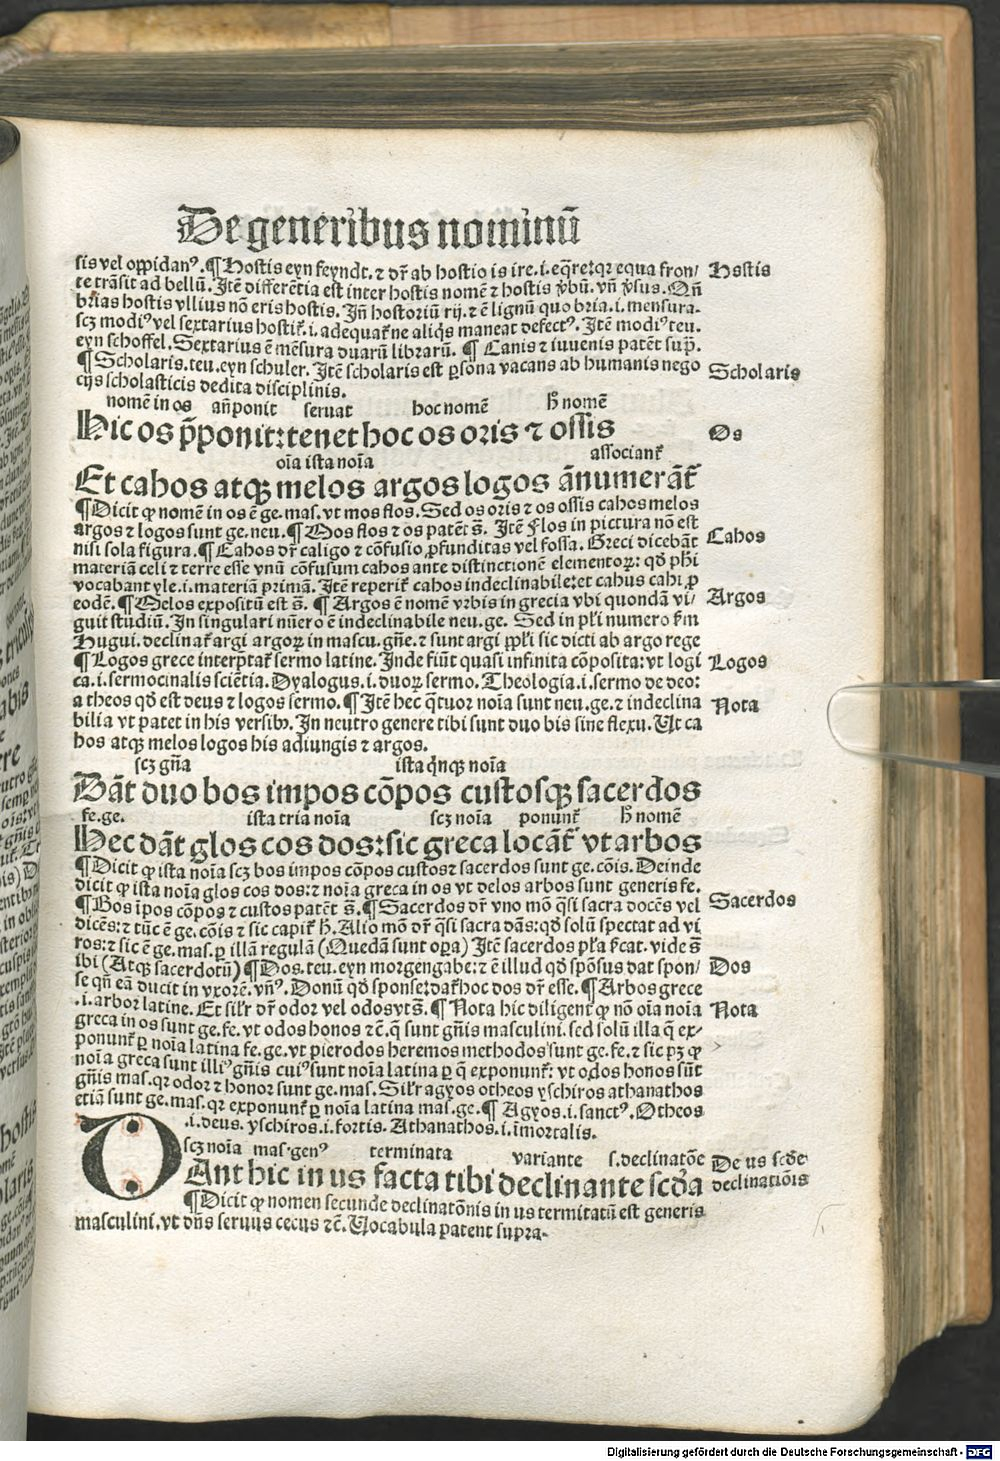 De generibus nominū
sis vel oppidanꝰ. ¶ Hostis eyn feyndt. ⁊ dr̄ ab hostio is ire .i. eq̄re: qꝛ equa fron/
te trāsit ad bellū. Itē differētia est inter hostis nomē ⁊ hostis v̓bū. vn̄ v̓sus. Qn̄
brias hostis vllius nō eris hostis. Jn̄ hostoriū rij. ⁊ ē lignū quo bria .i. mensura
scꝫ modiꝰ vel sextarius hostiť .i. adequať ne aliqͥs maneat defectꝰ. Itē modiꝰ teu.
eyn schoffel. Sextarius ē mēsura duarū librarū. ¶ Canis ⁊ iuuenis patēt sup̄.
¶ Scholaris. teu. eyn schuler. Itē scholaris est ꝑsona vacans ab humanis nego
cijs scholasticis dedita disciplinis.
Hostis
Scholaris
nomē in os an̄ponit seruat hoc nomē h̄ nomē
Hic os p̄ponit: tenet hoc os oris ⁊ ossis
Os
oīa ista noīa associanť
Et cahos atqꝫ melos argos logos ānumerāť
¶ Dicit ꝙ nomē in os ē ge. mas. vt mos flos. Sed os oris ⁊ os ossis cahos melos
argos ⁊ logos sunt ge. neu. ¶ Mos flos ⁊ os patēt s̄. Itē flos in pictura nō est
nisi sola figura. ¶ Cahos dr̄ caligo ⁊ cōfusio ꝓfunditas vel fossa. Greci dicebāt
materiā celi ⁊ terre esse vnū cōfusum cahos ante distinctionē elementoꝝ: qd̄ ph̄i
vocabant yle .i. materiā primā. Itē reperiť cahos indeclinabile: et cahus cahi ꝓ
eodē. ¶ Melos expositū est s̄. ¶ Argos ē nomē vrbis in grecia vbi quondā vi/
guit studiū. In singulari nūero ē indeclinabile neu. ge. Sed in pl̄i numero ẜm
Hugui. declinať argi argoꝝ in mascu. gn̄e. ⁊ sunt argi ppl̄i sic dicti ab argo rege
¶ Logos grece interp̄tať sermo latine. Inde fiūt quasi infinita cōposita: vt logi
ca .i. sermocinalis sciētia. Dyalogus .i. duoꝝ sermo. Theologia .i. sermo de deo:
a theos qd̄ est deus ⁊ logos sermo. ¶ Itē hec q̄tuor noīa sunt neu. ge. ⁊ indeclina
bilia vt patet in his versibꝰ. In neutro genere tibi sunt duo bis sine flexu. Vt ca
hos atqꝫ melos logos his adiungis ⁊ argos.
Cahos
Argos
Logos
Nota
scꝫ gn̄a ista qͥnqꝫ noīa
Dāt duo bos impos cōpos custosqꝫ sacerdos
fe. ge. ista tria noīa scꝫ noīa ponunť h̄ nomē
Hec dāt glos cos dos: sic greca locāť vt arbos
¶ Dicit ꝙ ista noīa scꝫ bos impos cōpos custos ⁊ sacerdos sunt ge. cōis. Deinde
dicit ꝙ ista noīa glos cos dos: ⁊ noīa greca in os vt delos arbos sunt generis fe.
¶ Bos īpos cōpos ⁊ custos patēt s̄. ¶ Sacerdos dr̄ vno mō q̄si sacra docēs vel
dicēs: ⁊ tūc ē ge. cōis ⁊ sic capiť h̄. Alio mō dr̄ q̄si sacra dās: qd̄ solū spectat ad vi
ros: ⁊ sic ē ge. mas. ꝑ illā regulā (Quedā sunt oꝑa) Itē sacerdos pl̄a ẜcat. vide s̄
ibi (Atqꝫ sacerdotū) ¶ Dos. teu. eyn morgengabe: ⁊ ē illud qd̄ spōsus dat spon/
se qn̄ eā ducit in vxorē. vn̄ꝰ. Donū qd̄ sponse: dať hoc dos dr̄ esse. ¶ Arbos grece
.i. arbor latine. Et sil̄r dr̄ odor vel odos vt s̄. ¶ Nota hic diligent̓ ꝙ nō oīa noīa
greca in os sunt ge. fe. vt odos honos ⁊c̄. q̄ sunt gn̄is masculini. sed solū illa q̄ ex/
ponunť ꝑ noīa latina fe. ge. vt pierodos heremos methodos sunt ge. fe. ⁊ sic pꝫ ꝙ
noīa greca sunt illiꝰ gn̄is cuiꝰ sunt noīa latina ꝑ q̄ exponunť: vt odos honos sūt
gn̄is mas. qꝛ odor ⁊ honor sunt ge. mas. Sil̄r agyos otheos yschiros athanathos
etiā sunt ge. mas. qꝛ exponunť ꝑ noīa latina mas. ge. ¶ Agyos .i. sanctꝰ. Otheos
.i. deus. yschiros .i. fortis. Athanathos .i. īmortalis.
Sacerdos
Dos
Nota
scꝫ noīa mas. genꝰ terminata variante s. declinatōe
DAnt hic in us facta tibi declinante scd̄a
De us scd̄e
declinatiōis
¶ Dicit ꝙ nomen secunde declinatōnis in us termitatū est generis
masculini. vt dn̄s seruus cecus ⁊c̄. Vocabula patent supra.
Digitalisierung gefördert durch die Deutsche Forschungsgemeinschaft - DFG